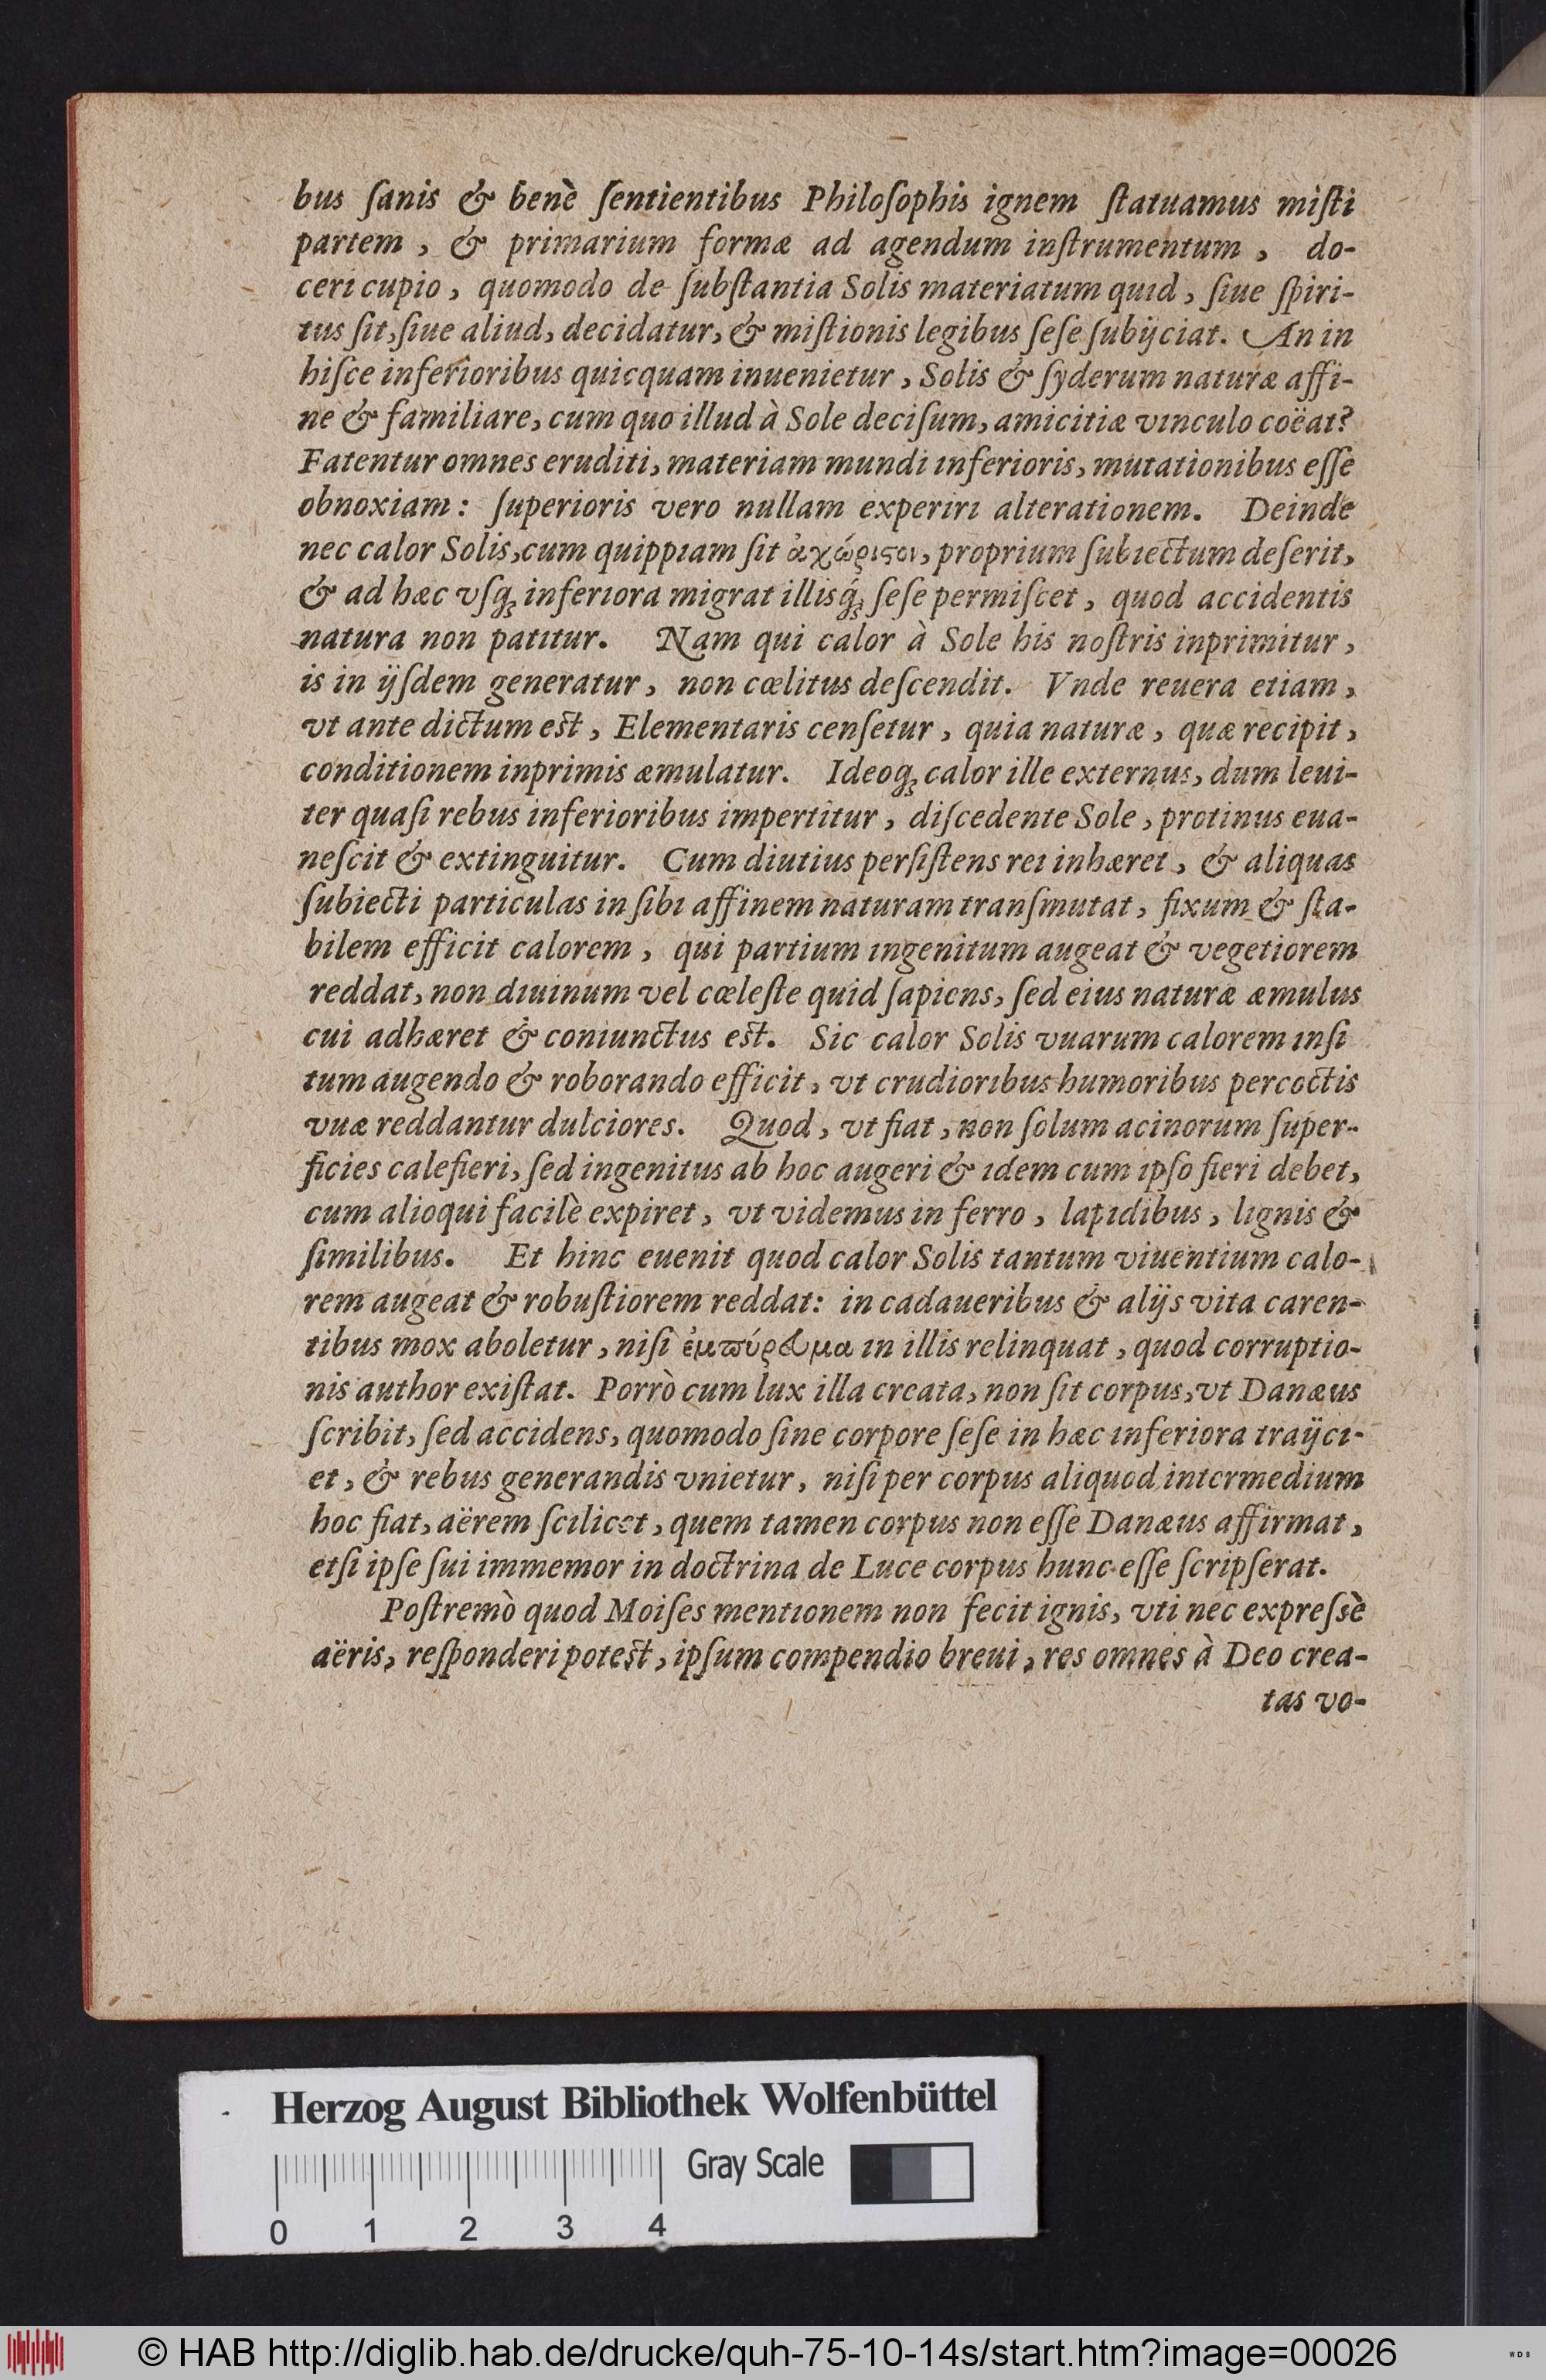 bus ſanis & benè ſentientibus Philoſophis ignem ſtatuamus miſti
partem, & primarium formæ ad agendum inſtrumentum, do-
ceri cupio, quomodo de ſubſtantia Solis materiatum quid, ſiue ſpiri-
tus ſit, ſiue aliud, decidatur, & miſtionis legibus ſeſe ſubijciat. An in
hiſce inferioribus quicquam inuenietur, Solis & ſyderum naturæ affi-
ne & familiare, cum quo illud à Sole deciſum, amicitiæ vinculo coëat?
Fatentur omnes eruditi, materiam mundi inferioris, mutationibus eſſe
obnoxiam: ſuperioris vero nullam experiri alterationem. Deinde
nec calor Solis, cum quippiam ſit ἀχώριςοι, proprium ſubiectum deſerit,
& ad hæc vſq; inferiora migrat illisq́; ſeſe permiſcet, quod accidentis
natura non patitur. Nam qui calor à Sole his noſtris inprimitur,
is in ijſdem generatur, non cœlitus deſcendit. Vnde reuera etiam,
vt ante dictum est, Elementaris cenſetur, quia naturæ, quæ recipit,
conditionem inprimis æmulatur. Ideoq; calor ille externus, dum leui-
ter quaſi rebus inferioribus impertitur, diſcedente Sole, protinus eua-
neſcit & extinguitur. Cum diutius perſiſtens rei inhæret, & aliquas
ſubiecti particulas in ſibi affinem naturam tranſmutat, fixum & ſta-
bilem efficit calorem, qui partium ingenitum augeat & vegetiorem
reddat, non diuinum vel cœleſte quid ſapiens, ſed eius naturæ æmulus
cui adhæret & coniunctus est. Sic calor Solis vuarum calorem inſi
tum augendo & roborando efficit, vt crudioribus humoribus percoctis
vuæ reddantur dulciores. Quod, vt fiat, non ſolum acinorum ſuper-
ficies calefieri, ſed ingenitus ab hoc augeri & idem cum ipſo fieri debet,
cum alioqui facilè expiret, vt videmus in ferro, lapidibus, lignis &
ſimilibus. Et hinc euenit quod calor Solis tantum viuentium calo-
rem augeat & robuſtiorem reddat: in cadaueribus & alijs vita caren-
tibus mox aboletur, niſi ἐμπύρευμα in illis relinquat, quod corruptio-
nis author exiſtat. Porrò cum lux illa creata, non ſit corpus, vt Danæus
ſcribit, ſed accidens, quomodo ſine corpore ſeſe in hæc inferiora traijci-
et, & rebus generandis vnietur, niſi per corpus aliquod intermedium
hoc fiat, aërem ſcilicet, quem tamen corpus non eſſe Danæus affirmat,
etſi ipſe ſui immemor in doctrina de Luce corpus hunc eſſe ſcripſerat.
Poſtremò quod Moiſes mentionem non fecit ignis, vti nec expreſsè
aëris, reſponderi potest, ipſum compendio breui, res omnes à Deo crea-
tas vo-
Herzog August Bibliothek Wolfenbüttel
Gray Scale
0 1 2 3 4
© HAB http://diglib.hab.de/drucke/quh-75-10-14s/start.htm?image=00026